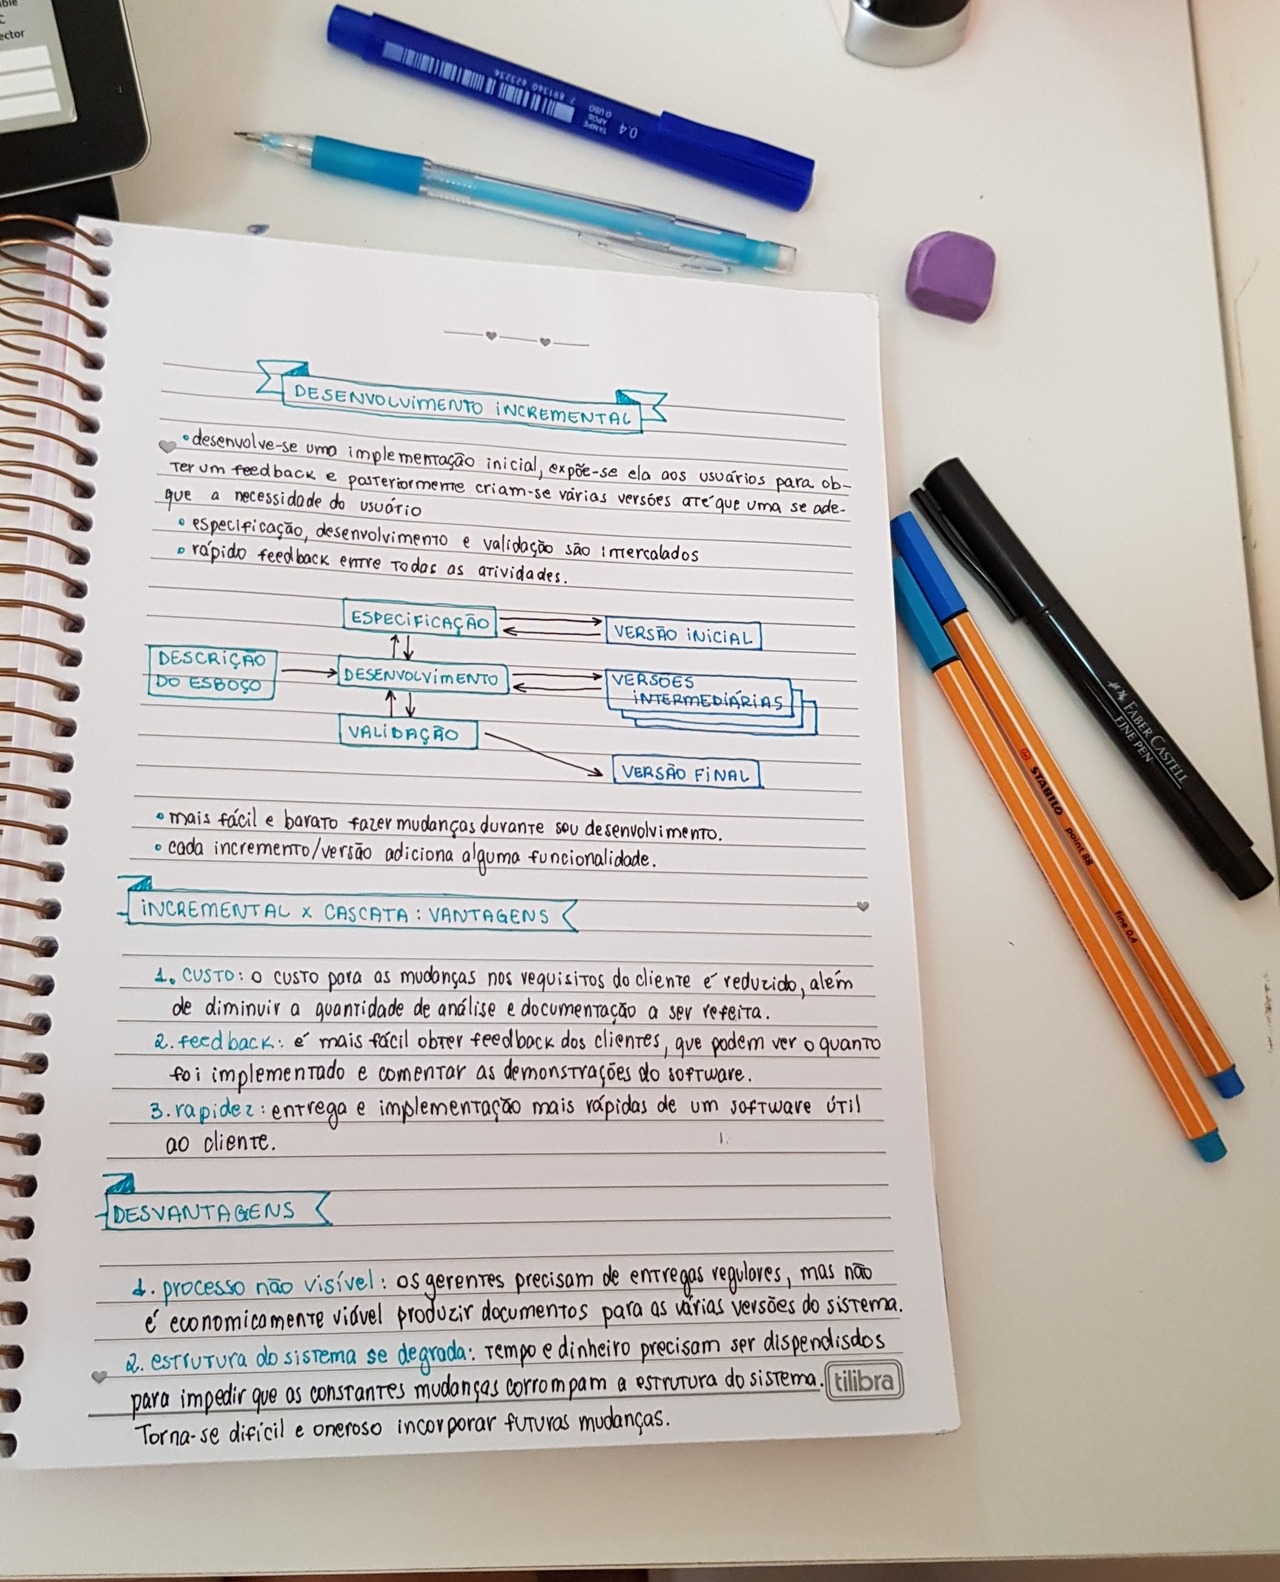 ble
C
ector
7 891360 623236
TAMPE
APÓS
O USO
0.4
DESENVOLVIMENTO INCREMENTAL
• desenvolve-se uma implementação inicial, expõe-se ela aos usuários para ob-
ter um feedback e posteriormente criam-se várias versões até que uma se ade-
que a necessidade do usuário
• especificação, desenvolvimento e validação são intercalados
• rápido feedback entre todas as atividades.
ESPECIFICAÇÃO
VERSÃO INICIAL
DESCRIÇÃO
DO ESBOÇO
DESENVOLVIMENTO
VERSÕES
INTERMEDIÁRIAS
VALIDAÇÃO
VERSÃO FINAL
• mais fácil e barato fazer mudanças durante seu desenvolvimento.
• cada incremento/versão adiciona alguma funcionalidade.
INCREMENTAL X CASCATA: VANTAGENS
1. CUSTO: o custo para as mudanças nos requisitos do cliente é reduzido, além
de diminuir a quantidade de análise e documentação a ser refeita.
2. feedback: é mais fácil obter feedback dos clientes, que podem ver o quanto
foi implementado e comentar as demonstrações do software.
3. rapidez: entrega e implementação mais rápidas de um software útil
ao cliente.
DESVANTAGENS
1. processo não visível: os gerentes precisam de entregas regulares, mas não
é economicamente viável produzir documentos para as várias versões do sistema.
2. estrutura do sistema se degrada: tempo e dinheiro precisam ser dispendisdos
para impedir que as constantes mudanças corrompam a estrutura do sistema.
Torna-se difícil e oneroso incorporar futuras mudanças.
tilibra
FABER CASTELL
FINE PEN
STABILO point 88 fine 0,4